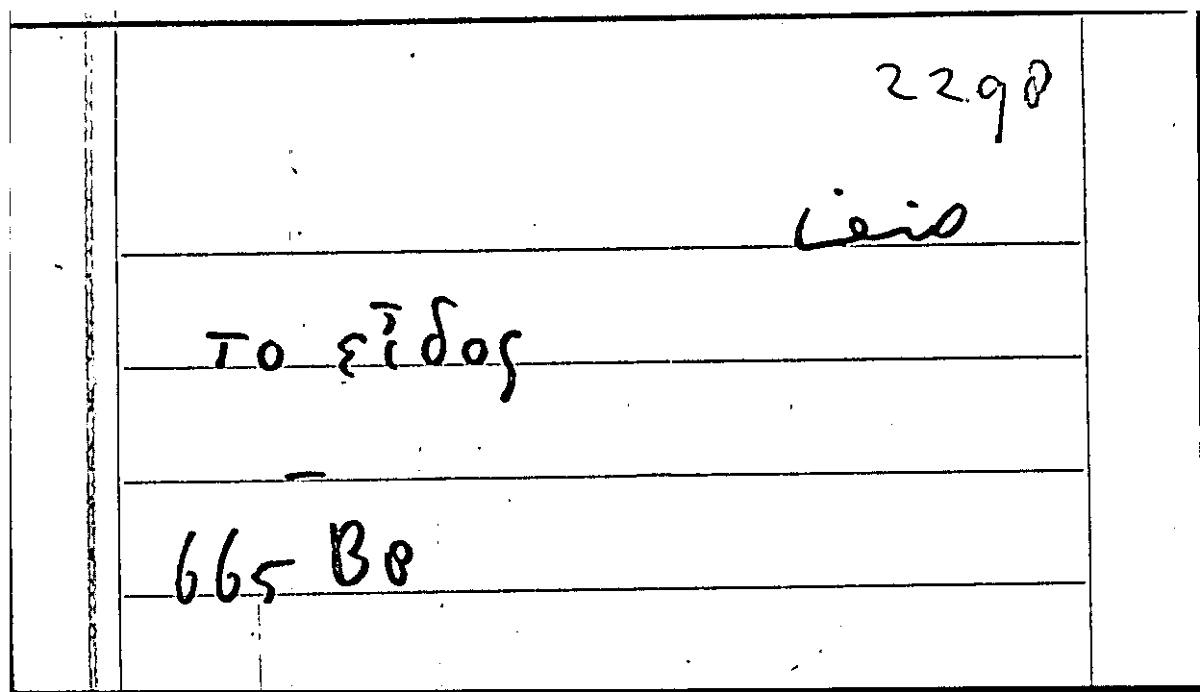 2298
το εἶδος
665 B8